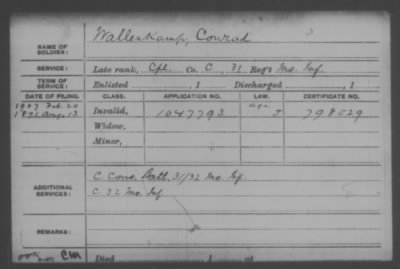 NAME OF SOLDIER: Wallenkamp, Conrad
SERVICE: Late rank, Cpl. Co. C, 31 Reg't Mo. Inf.
TERM OF SERVICE: Enlisted , 1 Discharged , 1
DATE OF FILING. CLASS. APPLICATION NO. LAW. CERTIFICATE NO.
1907 Feb. 20 age
1891 Aug. 13 Invalid, 1047793 J 798029
Widow,
Minor,
ADDITIONAL SERVICES: C Cons. Batt. 31/32 Mo. Inf.
C 32 Mo. Inf
REMARKS:
CM Died , 1 , at